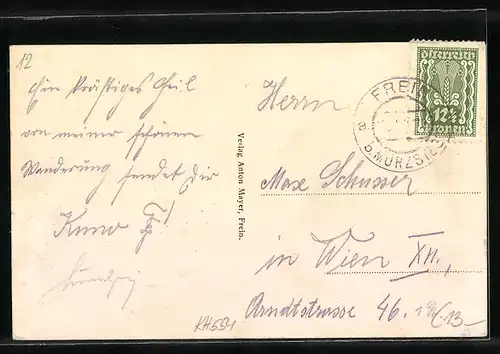 12
Ein kräftiges Heil
von meiner schönen
Wanderung sendet dir
Kuno
Verlag Anton Mayer, Frein.
Herrn
Max Schusser
in Wien XII.
Arndtstrasse 46.
KH554
österreich
12½
Kronen
FREIN
a
b. MÜRZSTEG